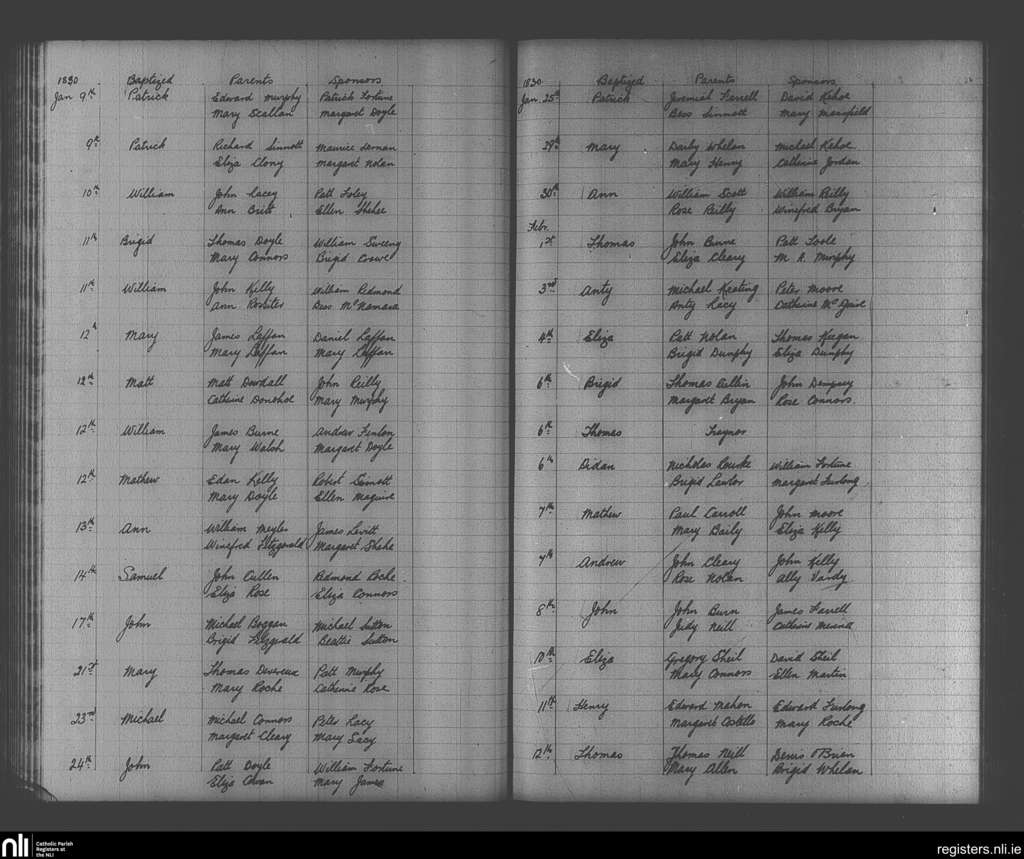 1830 Baptized Parents Sponsors
Jan 9th Patrick Edward Murphy Patrick Fortune
Mary Scallan Margaret Doyle
9th Patrick Richard Sinnott Maurice
Eliza Clony Margaret Nolan
10th William John Lacey Patt Foley
Ann Britt Ellen Shehe
11th Brigid Thomas Doyle William Sweeny
Mary Connors Brigid Crowe
11th William John Kelly William Redmond
Ann Rositer Bess McNamara
12th Mary James Laffan Daniel Laffan
Mary Laffan Mary Laffan
12th Matt Matt Dowdall John Reilly
Catherine Donohoe Mary Murphy
12th William James Burne Andrew Fenlon
Mary Walsh Margaret Doyle
12th Mathew Edan Kelly Robert Sinnott
Mary Doyle Ellen Maguire
13th Ann William Meyler James Levitt
Winefred Fitzgerald Margaret Shehe
14th Samuel John Cullen Redmond Roche
Eliza Rose Eliza Connors
17th John Michael Boggan Michael Sutton
Brigid Fitzgerald Beattie Sutton
21st Mary Thomas Devereux Patt Murphy
Mary Roche Catherine Rose
23rd Michael Michael Connors Peter Lacy
Margaret Cleary Mary Lacy
24th John Patt Doyle William Fortune
Eliza Mary James
1830 Baptized Parents Sponsors
Jan. 25th Patrick Jeremiah Farrell David Kehoe
Bess Sinnott Mary Mansfield
29th Mary Darby Whelan Michael Kehoe
Mary Henry Catherine Jordan
30th Ann William Scott William Reilly
Rose Reilly Winefred Bryan
Febr.
1st Thomas John Burne Patt Toole
Eliza Cleary M. A. Murphy
3rd Anty Michael Keating Peter Moore
Anty Lacy Catherine
4th Eliza Patt Nolan Thomas Keegan
Brigid Dunphy Eliza Dunphy
6th Brigid Thomas Cullin John Dempsey
Margaret Bryan Rose Connors.
6th Thomas Traynor
6th Didan Nicholas Rourke William Fortune
Brigid Lawlor Margaret Furlong
7th Mathew Paul Carroll John Moore
Mary Baily Eliza Kelly
7th Andrew John Cleary John Kelly
Rose Nolan Ally Vardy
8th John John Burn James Farrell
Judy Neill Catherine
10th Eliza Gregory Sheil David Sheil
Mary Connors Ellen Martin
11th Henry Edward Mahon Edward Furlong
Margaret Costello Mary Roche
12th Thomas Thomas Neill Denis O'Brien
Mary Allen Brigid Whelan
nli Catholic Parish
Registers at
the NLI
registers.nli.ie